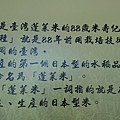 是臺灣蓬萊米的88歲米壽紀
種」就是88年前用栽培技術
用的臺灣。
產的第一個日本型的水稻品
命名為「蓬萊」。
「蓬萊米」一詞指的就是
、生產的日本型米。